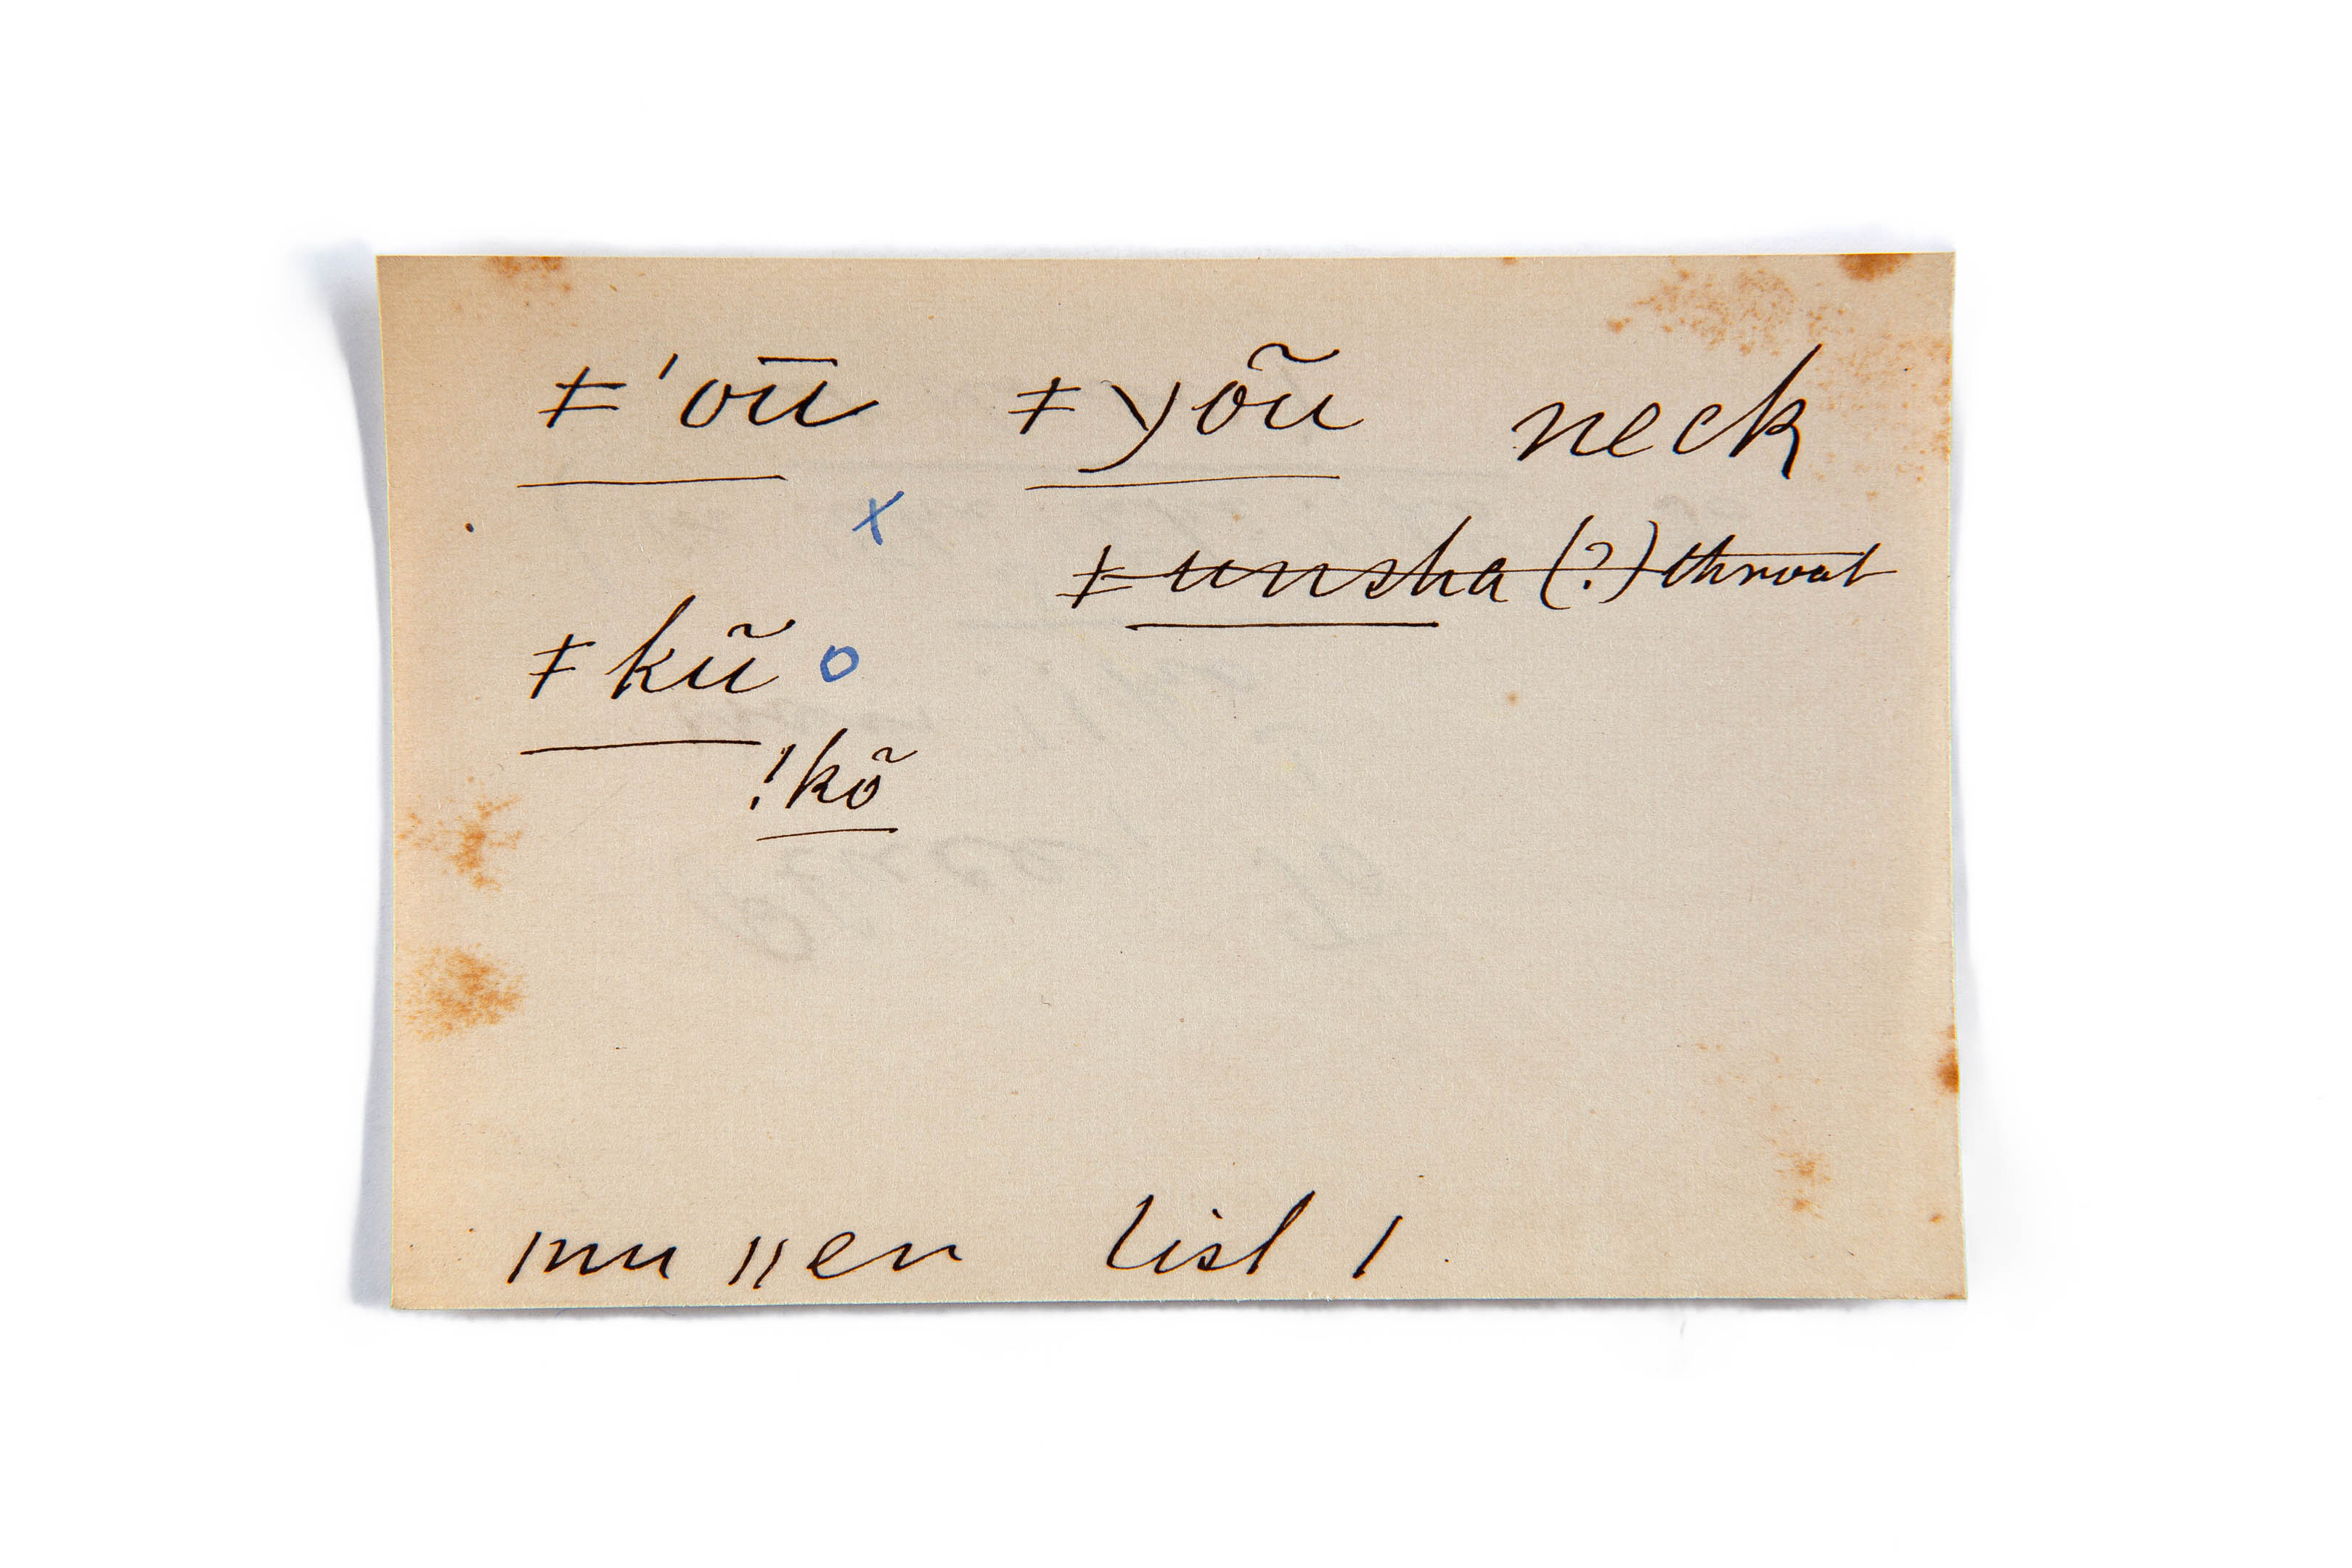 ǂ'oū ǂyõũ neck
x
ǂunsha (?) throat
ǂkũ o
!kõ
ǀnu ǁen List 1.